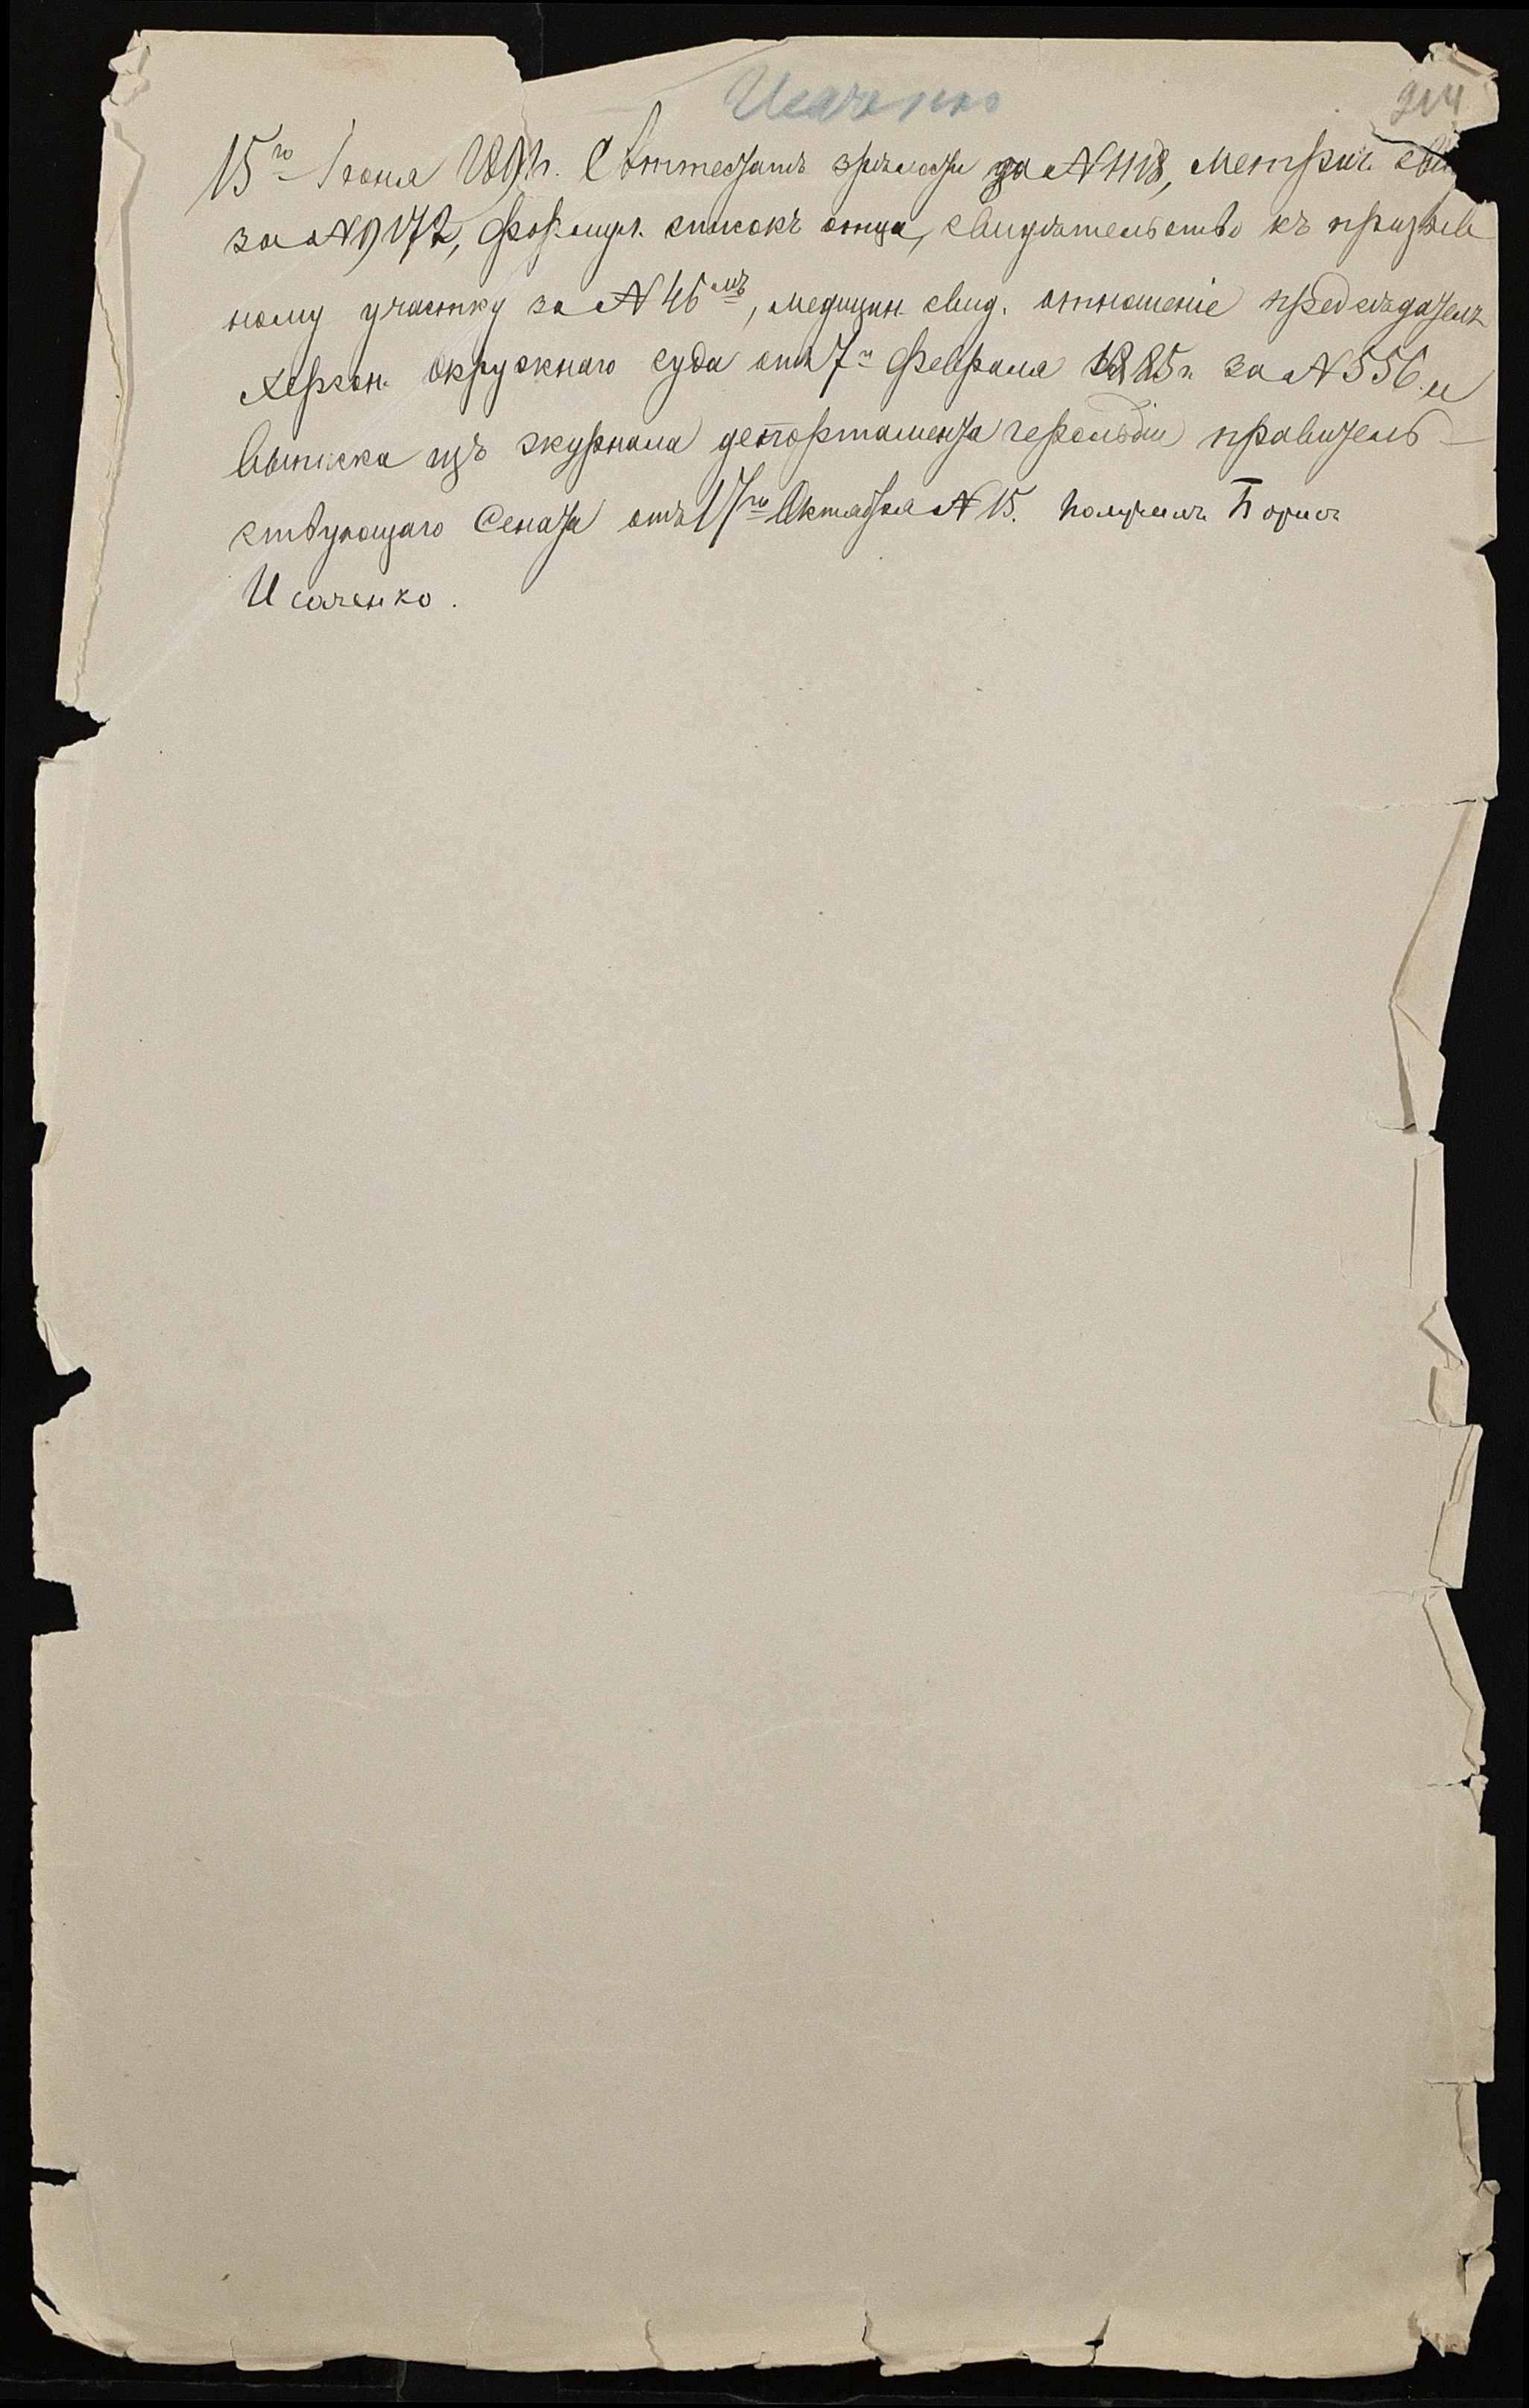 Исаченко
214
15го Іюня 1891г. Аттестатъ зрѣлости за N 1118, Метрич. сви
за N 9172, формул. списокъ отца, свидѣтельство къ призыв
ному участку за N 46мъ, медицин. свид. отношеніе предсѣдателя
Херсон. Окружнаго суда отъ 7го Февраля 1885г. за N 556 и
выписка изъ журнала департамента герольдіи правитель-
ствующаго Сената отъ 17го Октября N 15. получилъ Борисъ
Исаченко.